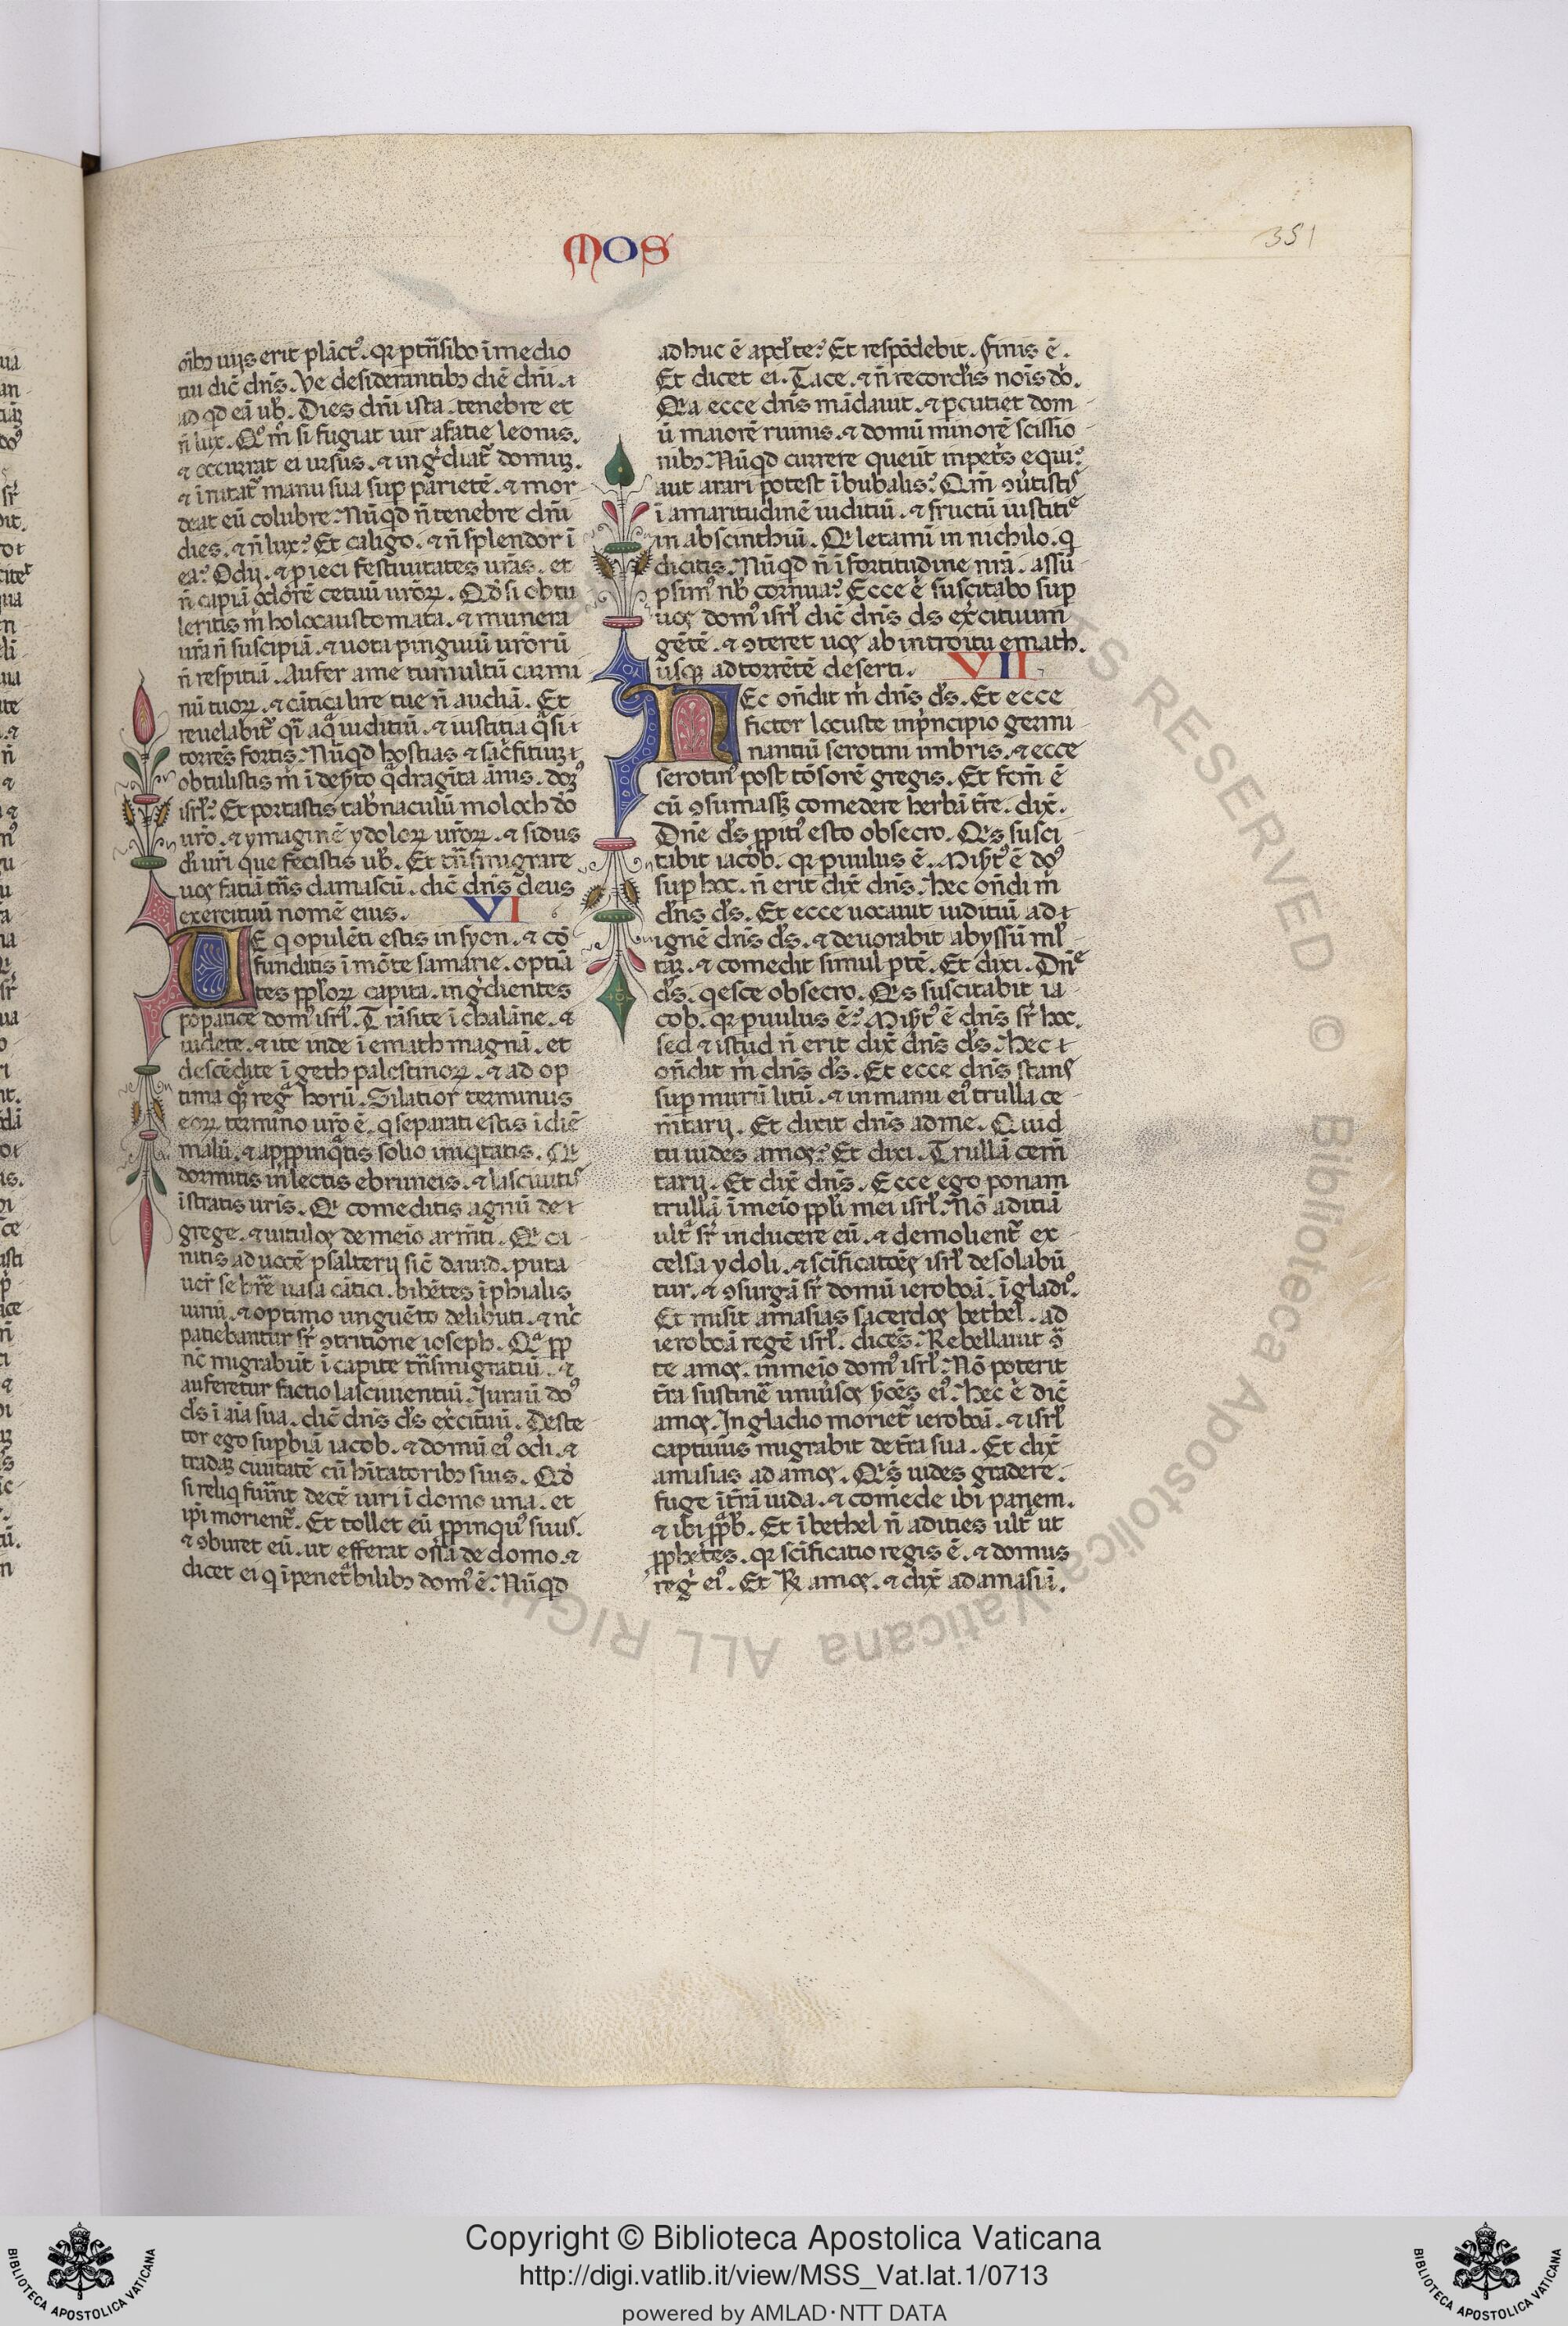 MOS
351
oībꝫ uijs erit plāctꝰ. qꝛ ꝑtñsibo ī medio
tui dic̄ dn̄s. Ve desiderantibꝫ diē dn̄i. ⁊
ad qd̄ eā ub̄. Dies dn̄i ista tenebre et
n̄ lux. Qꝰm̄ si fugiat uir a fatie leonis.
⁊ occurrat ei ursus. ⁊ ingͥdiat̄ domuꝫ.
⁊ īnitat̄ manu sua suꝑ parietē. ⁊ mor
deat eū colubre. Nūqd n̄ tenebre dn̄i
dies. ⁊ n̄ lux? Et caligo. ⁊ n̄ splendor ī
ea? Odij. ⁊ ꝓieci festiuitates ur̄as. et
n̄ capiā odorē cetuū ur̄oꝝ. Qd̓ si obtu
leritis m̄ holocaustomata. ⁊ munera
ur̄a n̄ suscipiā. ⁊ uota pinguiū ur̄orū
n̄ respitiā. Aufer a me tumultū carmi
nū tuoꝝ. ⁊ cātica lire tue n̄ audiā. Et
reuelabit̄ qͣi aqͣ iuditiū. ⁊ iustitia qͣsi ⁊
torrēs fortis. Nūqd hostias ⁊ sac̓fitiuꝫ ⁊
obtulistis m̄ ī des̓to qͣdragīta ānis. domꝰ
isrl̄? Et portastis tab̓naculū moloch dō
ur̄o. ⁊ ymaginē ydoloꝝ ur̄oꝝ. ⁊ sidus
di uri que fecistis ub̄. Et tn̄smigrare
uos fatiā tn̄s damascū. dic̄ dn̄s deus
exercituū nomē eius. VI
UE q opulēti estis in syon. ⁊ cō
funditis ī mōte samarie. optiā
tes pploꝝ capita. ingͥdientes
popaticē domꝰ isrl̄. Trāsite ī chalāne. ⁊
uidete. ⁊ ite inde ī emath magnā. et
descēdite ī geth palestinoꝝ. ⁊ ad op
tima qͣꝫ regͣ horū. Si latior terminus
eoꝝ termino ur̄o ē. q separati estis ī diē
malū. ⁊ apꝓpinqͣtis solio iniqtatis. Qꝛ
dormitis in lectis eburneis. ⁊ lasciuitis
ī stratis uris. Qꝛ comeditis agnū de ⁊
grege. ⁊ uitulos de meīo arm̄ti. Qꝛ ca
nitis ad uocē psalterij sic̄ dauid. puta
uer̄ se hr̄e uasa cātici. bibētes ī phialis
uinū. ⁊ optimo unguēto delibuti. ⁊ nͥc
patiebantur sr̄ ꝯtritione ioseph. Qͣ ꝓp
nc̄ migrabūt ī capite tn̄smigratiū. ⁊
auferetur factio lasciuientiū. Iurauī dꝰo
ds̄ ī aīa sua. dic̄ dn̄s ds̄ excituū. Deste
tor ego suꝑbiā iacob. ⁊ domū eiꝰ odi. ⁊
tradaꝫ ciuitatē cū h̄itatoribꝫ suis. Qd̓
si reliq fuīnt decē uiri ī domo una. et
ip̄i morient̄. Et tollet eū ꝓpinquꝰ suus.
⁊ ꝯburet eū. ut efferat ossa de domo. ⁊
dicet ei q ī penetͣbilibꝫ domꝰ ē. Nūqd
adhuc ē apd̓ te? Et respōdebit. Finis ē.
Et dicet ei. Tace. ⁊ n̄ recordis̓ noīs do͂.
Qia ecce dn̄s mādauit. ⁊ ꝑcutiet dom
ū maiorē ruinis. ⁊ domū minorē scissio
nibꝫ. Nūqd currere queūt in pet̓s equi?
aut arari potest ī bubalis? Qm̄ ꝯu̓tistis
ī amaritudinē iuditiū. ⁊ fructū iustitie
in abscinthiū. Qꝛ letami in nichilo. q
dicitis. Nūqd n̄ ī fortitudine nr̄a. assū
psimꝰ nb̄ cornua? Ecce ē suscitabo suꝑ
uos domꝰ isrl̄ dic̄ dn̄s ds̄ exͥcituum
gētē. ⁊ ꝯteret uos ab introitu emath.
usqꝫ ad torrētē deserti. VII
HEc on̄dit m̄ dn̄s ds̄. Et ecce
fictor locuste in pͥncipio germi
nantiū serotini imbris. ⁊ ecce
serotinꝰ post tōsorē gregis. Et fcm̄ ē
cū ꝯsumassꝫ comedere herbā tr̄e. dix̄.
Dn̄e ds̄ ꝓpitiꝰ esto obsecro. Qis susci
tabit iacob. qꝛ ꝑuulus ē. Mis̓tꝰ ē dꝰo
suꝑ hoc. n̄ erit dix̄ dn̄s. Hec on̄di m̄
dn̄s ds̄. Et ecce uocauit iuditiū ad ⁊
ignē dn̄s ds̄. ⁊ deuorabit abyssū ml̄
taꝫ. ⁊ comedit simul ptē. Et dixi. Dn̄e
ds̄. qesce obsecro. Qis suscitabit ia
cob. qꝛ ꝑuulus ē? Mis̓tꝰ ē dn̄s sr̄ hoc.
sed ⁊ istud n̄ erit dix̄ dn̄s ds̄. Hec ⁊
on̄dit m̄ dn̄s ds̄. Et ecce dn̄s stans
suꝑ murū litū. ⁊ in manu eiꝰ trulla ce
m̄tarij. Et dixit dn̄s ad me. Quid
tu uides amos? Et dixi. Trullā cem̄
tarij. Et dix̄ dn̄s. Ecce ego ponam
trullā ī meīo ppl̄i mei isrl̄. Nō aditiā
ultͣ sr̄ inducere eū. ⁊ demolient̄ ex
celsa ydoli. ⁊ sc̄ificatōēs isrl̄ desolabū
tur. ⁊ ꝯsurgā sr̄ domū ieroboā. ī gladiꝰo.
Et misit amasias sacerdos bethel. ad
ieroboā regē isrl̄. dicēs. Rebellauit ꝯͣ
te amos. in meīo domꝰ isrl̄. Nō poterit
tr̄a sustinē uniuͥsos s̓ōes eiꝰ. Hec ē dic̄
amos. In gladio moriet̄ ieroboā. ⁊ isrl̄
captiuus migrabit de tr̄a sua. Et dix̄
amasias ad amos. Qis uides gradere.
fuge ī tr̄ā iuda. ⁊ comede ibi panem.
⁊ ibi ꝓphͣb. Et ī bethel n̄ adities ultͣ ut
ꝓphetes. qꝛ sc̄ificatio regis ē. ⁊ domus
regͥ eiꝰ. Et R̄ amos. ⁊ dix̄ ad amasiā.
Biblioteca Apostolica Vaticana ALL RIGHTS RESERVED ©
Copyright © Biblioteca Apostolica Vaticana
http://digi.vatlib.it/view/MSS_Vat.lat.1/0713
powered by AMLAD·NTT DATA
BIBLIOTECA APOSTOLICA VATICANA
BIBLIOTECA APOSTOLICA VATICANA